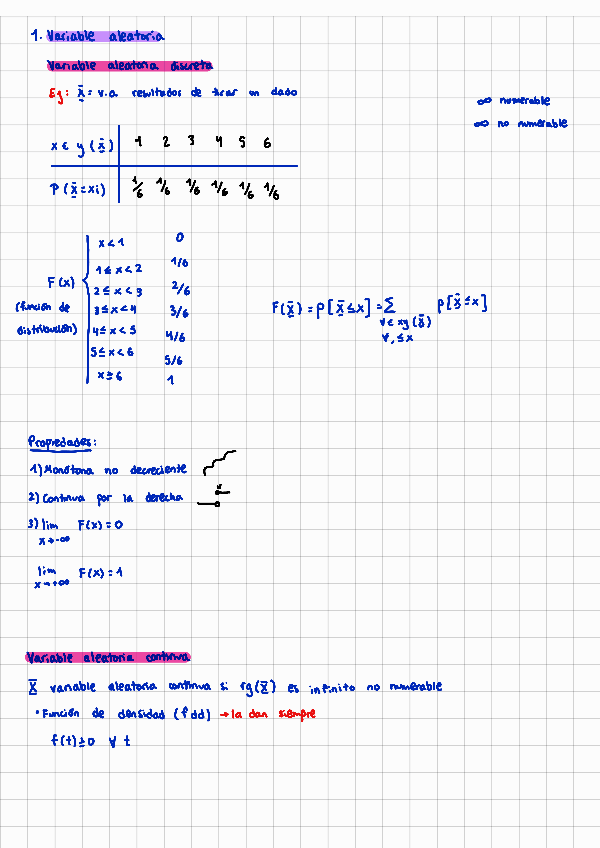 1. Variable aleatoria
Variable aleatoria discreta
Eg: X = v.a resultados de tirar un dado
∞ numerable
∞ no numerable
x ∈ y (X) 1 2 3 4 5 6
P (X = xi) 1/6 1/6 1/6 1/6 1/6 1/6
x < 1 0
1 ≤ x < 2 1/6
F(x) 2 ≤ x < 3 2/6
(función de 3 ≤ x < 4 3/6
distribución) 4 ≤ x < 5 4/6
5 ≤ x < 6 5/6
x ≥ 6 1
F(X) = P[X ≤ x] = Σ P[X ≤ x]
∀ ∈ xy (X)
∀, ≤ x
Propredades:
1) Monótona no decreciente
2) Continua por la derecha
3) lim F(x) = 0
x → -∞
lim F(x) = 1
x → +∞
Variable aleatoria continua
X variable aleatoria continua si rg(X) es infinito no numerable
• Función de densidad (fdd) → la dan siempre
f(t) ≥ 0 ∀ t